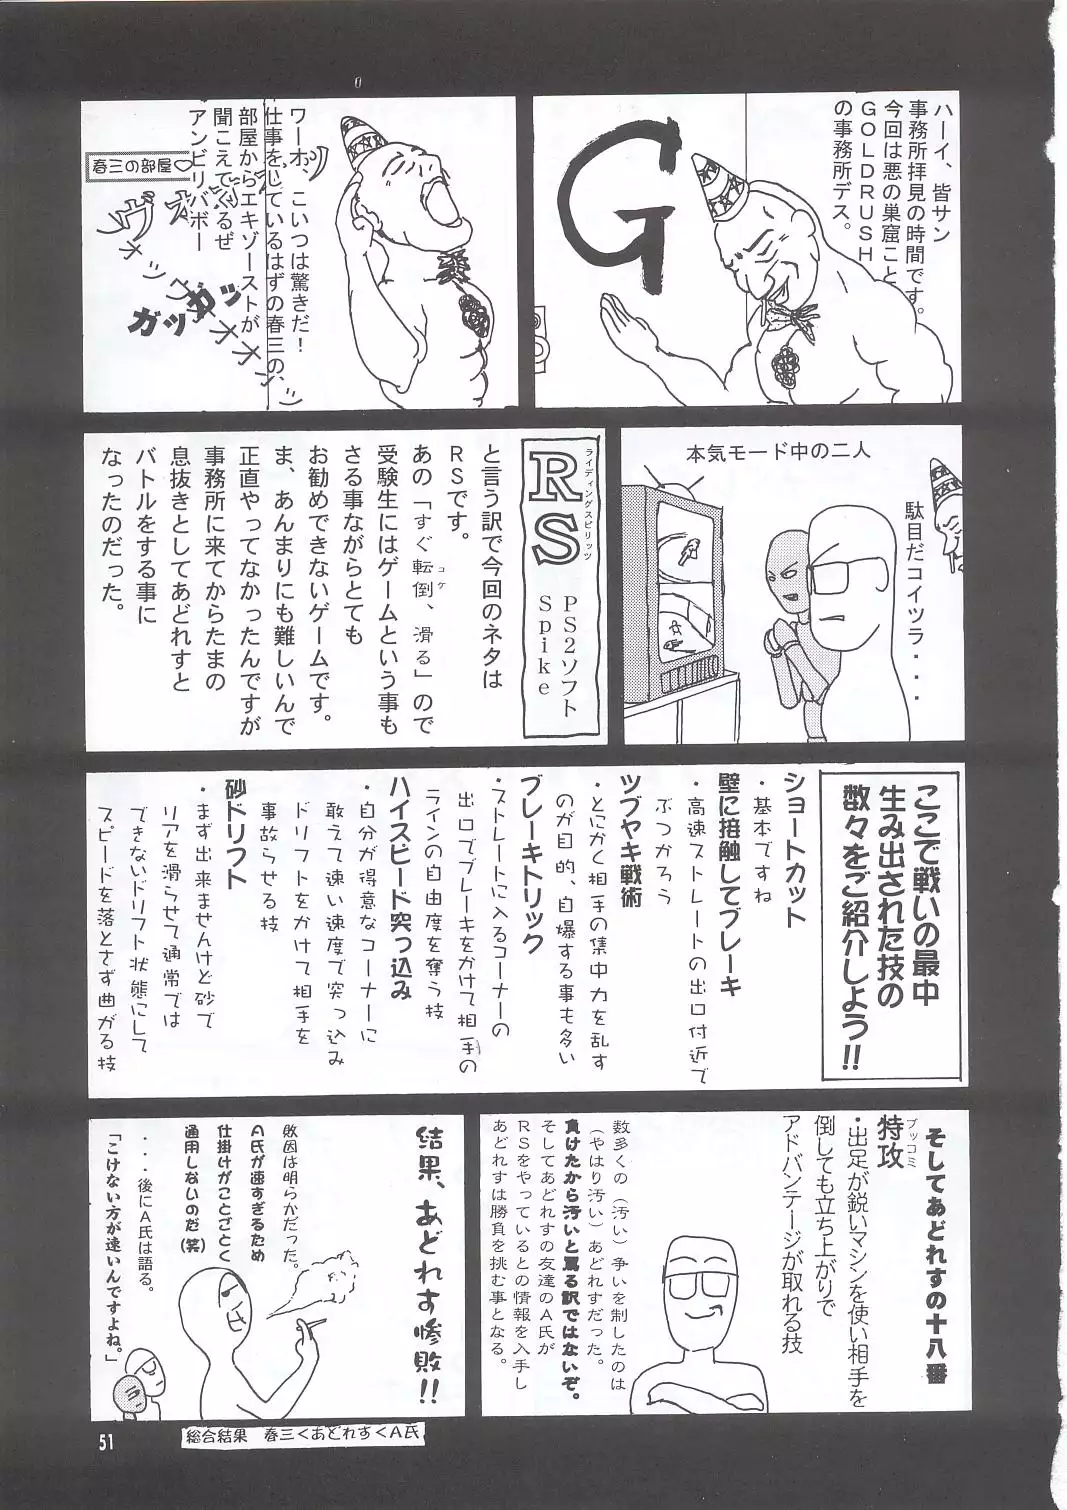 ハーイ、皆サン
事務所拝見の時間です。
今回は悪の巣窟こと
GOLDRUSH
の事務所デス。
G
ワーオ、こいつは驚きだ!
仕事をしているはずの春三の、
部屋からエキゾーストが
聞こえてくるぜ
アンビリバボー
春三の部屋♡
ガッガッ
本気モード中の二人
駄目だコイツラ・・・・
ライディングスピリッツ
RS
PS2ソフト
Spike
と言う訳で今回のネタは
RSです。
あの「すぐ転倒、滑る」ので
コケ
受験生にはゲームという事も
さる事ながらとても
お勧めできないゲームです。
ま、あんまりにも難しいんで
正直やってなかったんですが
事務所に来てからたまの
息抜きとしてあどれすと
バトルをする事に
なったのだった。
ここで戦いの最中
生み出された技の
数々をご紹介しよう!!
ショートカット
・基本ですね
壁に接触してブレーキ
・高速ストレートの出口付近で
ぶつかろう
ツブヤキ戦術
・とにかく相手の集中力を乱す
のが目的、自爆する事も多い
ブレーキトリック
・ストレートに入るコーナーの
出口でブレーキをかけて相手の
ラインの自由度を奪う技
ハイスピード突っ込み
・自分が得意なコーナーに
敢えて速い速度で突っ込み
ドリフトをかけて相手を
事故らせる技
砂ドリフト
・まず出来ませんけど砂で
リアを滑らせて通常では
できないドリフト状態にして
スピードを落とさず曲がる技
そしてあどれすの十八番
ブッコミ
特攻
・出足が鋭いマシンを使い相手を
倒しても立ち上がりで
アドバンテージが取れる技
数多くの(汚い)争いを制したのは
(やはり汚い)あどれすだった。
負けたから汚いと罵る訳ではないぞ。
そしてあどれすの友達のA氏が
RSをやっているとの情報を入手し
あどれすは勝負を挑む事となる。
結果、あどれす惨敗!!
敗因は明らかだった。
A氏が速すぎるため
仕掛けがことごとく
通用しないのだ(笑)
・・・後にA氏は語る。
「こけない方が速いんですよね。」
総合結果 春三<あどれす<A氏
51